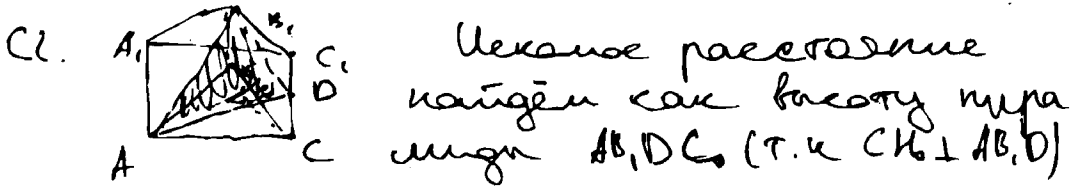 C2. A₁ B₁ C₁ D A C Искомое расстояние
найдём как высоту пира
миды AB₁DC, (т.к CH₀⊥AB₁D)